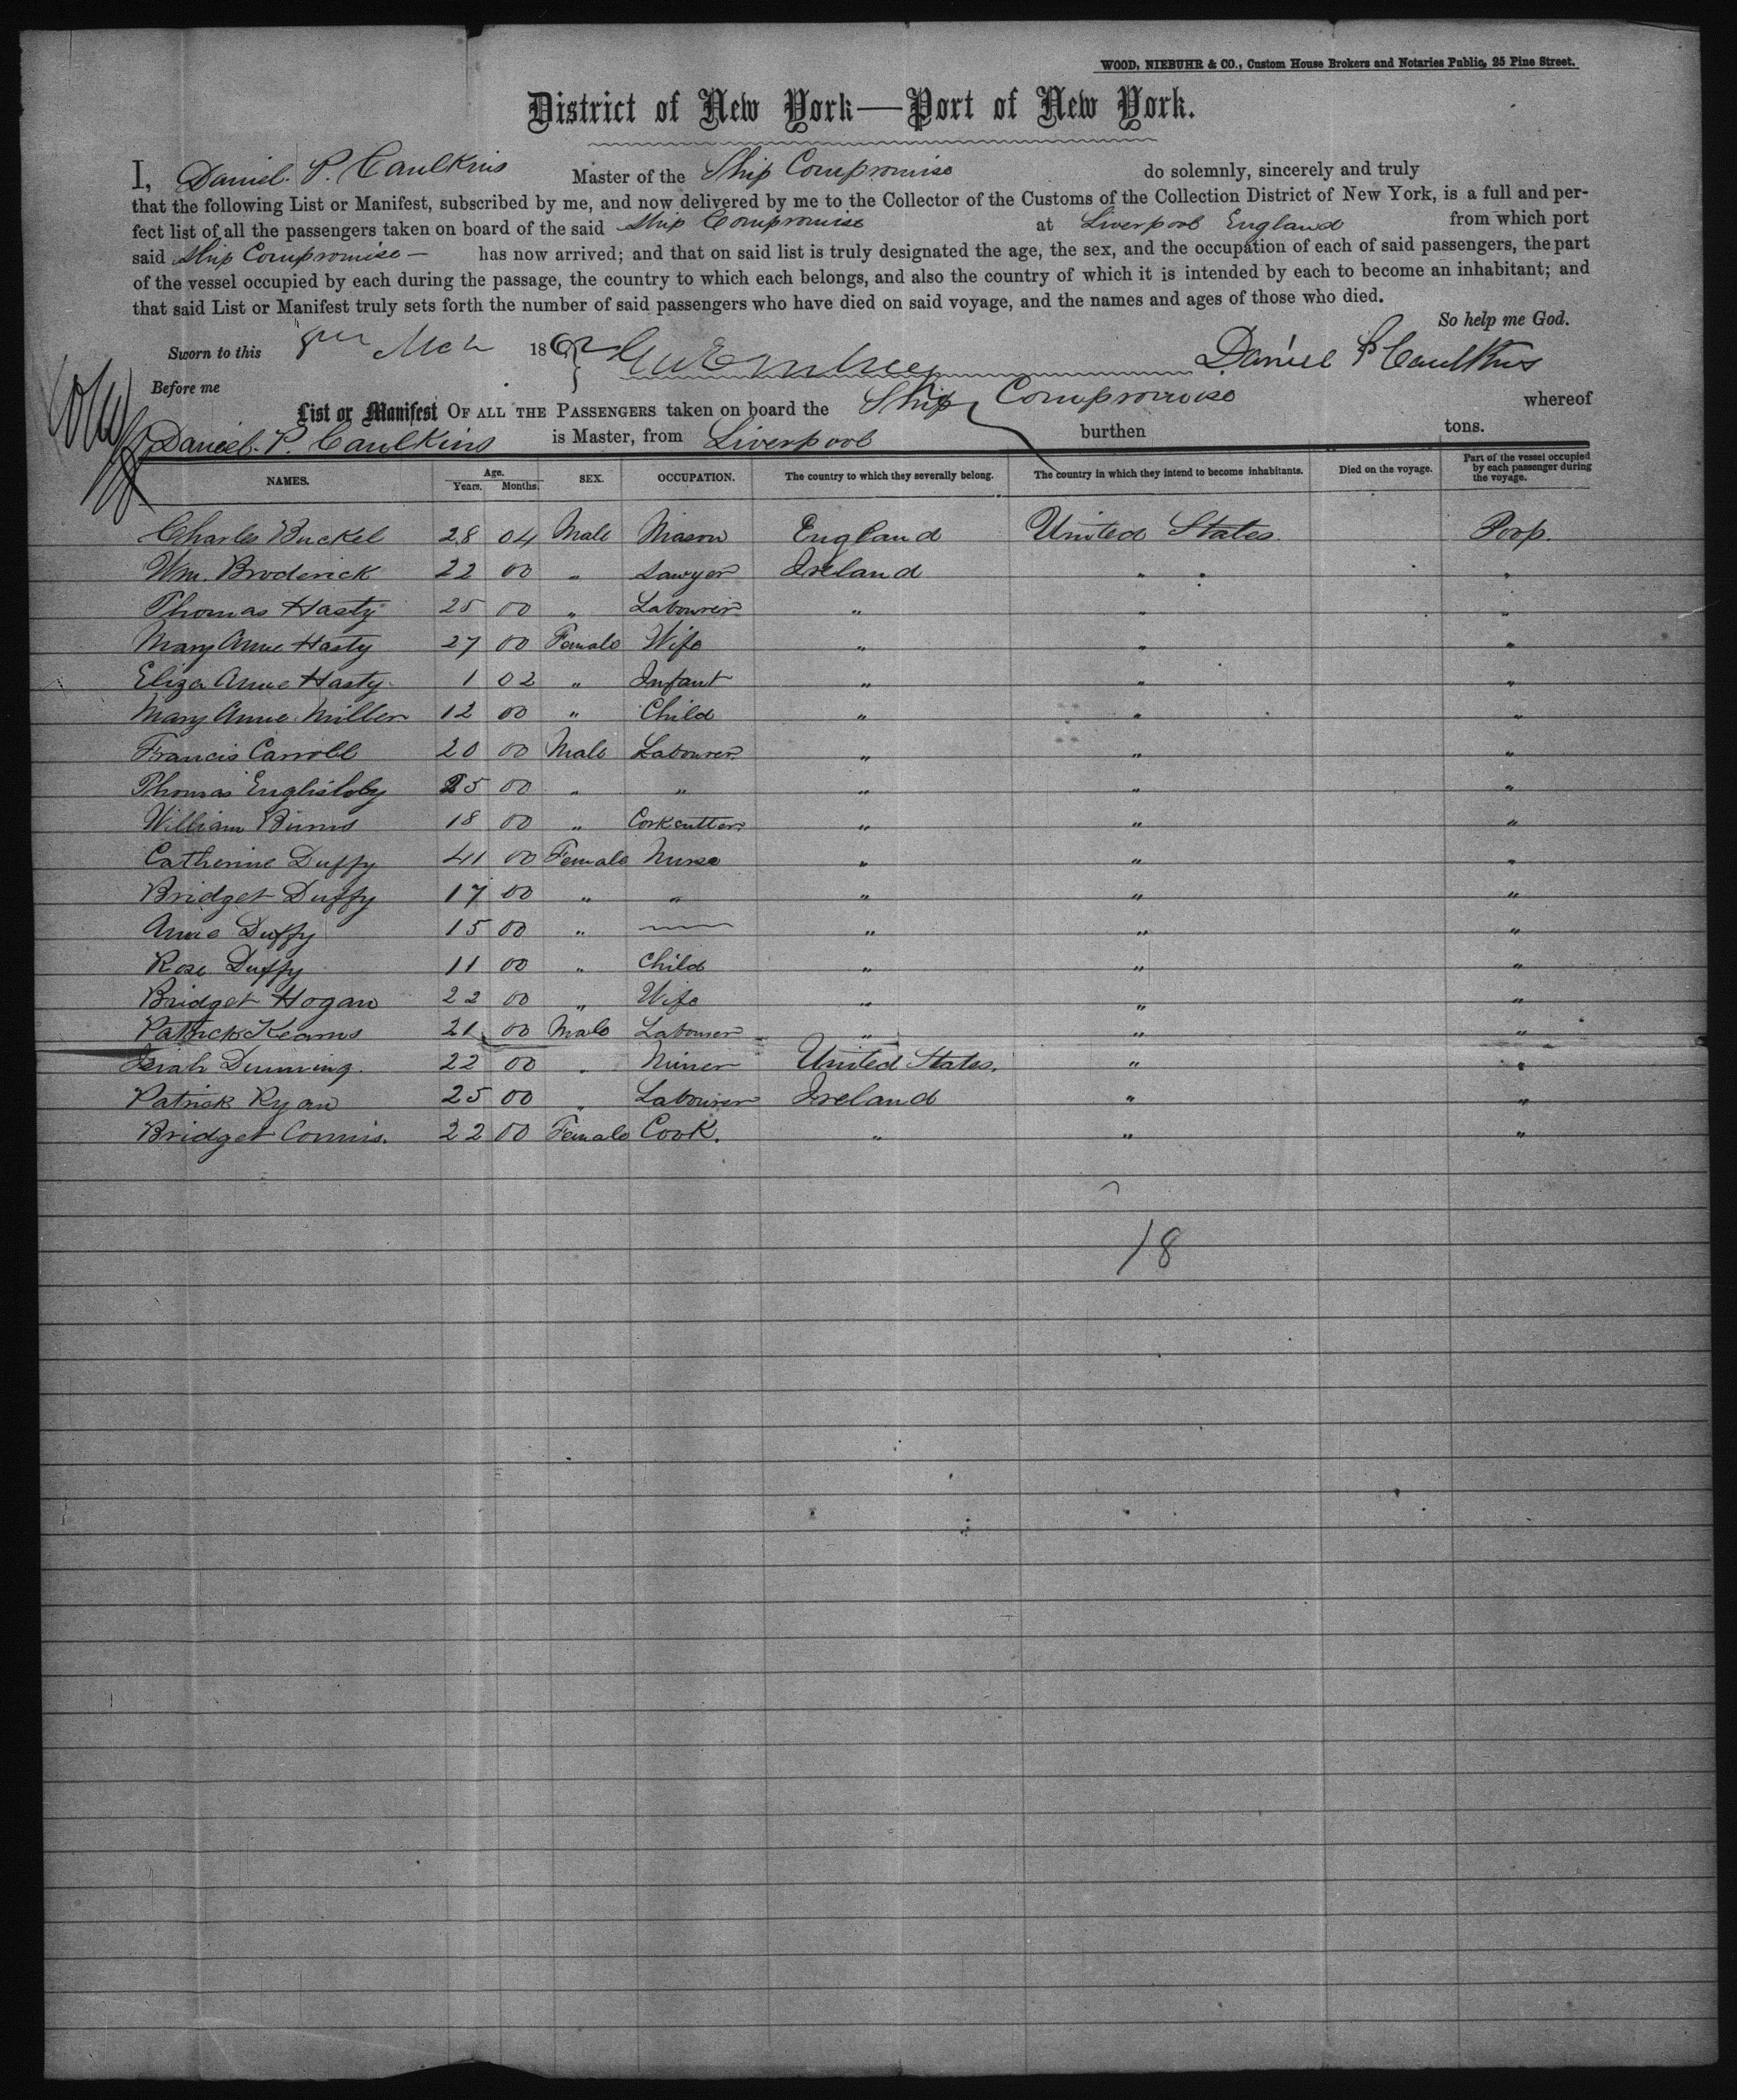 WOOD, NIEBUHR & CO., Custom House Brokers and Notaries Public, 25 Pine Street.
District of New York—Port of New York.
I, Daniel. P. Caulkins Master of the Ship Compromise do solemnly, sincerely and truly
that the following List or Manifest, subscribed by me, and now delivered by me to the Collector of the Customs of the Collection District of New York, is a full and per-
fect list of all the passengers taken on board of the said Ship Compromise at Liverpool England from which port
said Ship Compromise — has now arrived; and that on said list is truly designated the age, the sex, and the occupation of each of said passengers, the part
of the vessel occupied by each during the passage, the country to which each belongs, and also the country of which it is intended by each to become an inhabitant; and
that said List or Manifest truly sets forth the number of said passengers who have died on said voyage, and the names and ages of those who died.
So help me God.
Sworn to this 8th Mch 1862 Daniel P Caulkins
Before me
List or Manifest OF ALL THE PASSENGERS taken on board the Ship Compromise whereof
Daniel. P. Caulkins is Master, from Liverpool burthen tons.
NAMES. Age. Years. Months. SEX. OCCUPATION. The country to which they severally belong. The country in which they intend to become inhabitants. Died on the voyage. Part of the vessel occupied by each passenger during the voyage.
Charles Buckel 28 04 Male Mason England United States Poop.
Wm. Broderick 22 00 " Sawyer Ireland " " "
Thomas Hasty 25 00 " Labourer " " "
Mary Anne Hasty 27 00 Female Wife " " "
Eliza Anne Hasty 1 02 " Infant " " "
Mary Anne Miller 12 00 " Child " " "
Francis Carroll 20 00 Male Labourer " " "
Thomas Englishby 25 00 " " " " "
William Binns 18 00 " Corkcutter " " "
Catherine Duffy 41 00 Female Nurse " " "
Bridget Duffy 17 00 " " " " "
Anne Duffy 15 00 " — " " "
Rose Duffy 11 00 " Child " " "
Bridget Hogan 22 00 " Wife " " "
Patrick Kearns 21 00 Male Labourer " " "
Isiah Dunning. 22 00 " Miner United States. " "
Patrick Ryan 25 00 " Labourer Ireland " "
Bridget Connis. 22 00 Female Cook. " " "
18